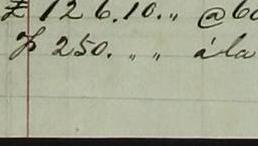 £ 126.10.„ @ 60
₣ 250. „ „ á la